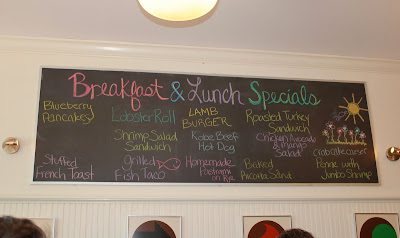 Breakfast & Lunch Specials
Blueberry
Pancakes
Stuffed
French Toast
Lobster Roll
Shrimp Salad
Sandwich
Grilled
Fish Taco
LAMB
BURGER
Kobe Beef
Hot Dog
Homemade
Pastrami
on Rye
Roasted Turkey
Sandwich
Chicken Avocado
& Mango
Salad
Baked
Salad
Penne with
Jumbo Shrimp